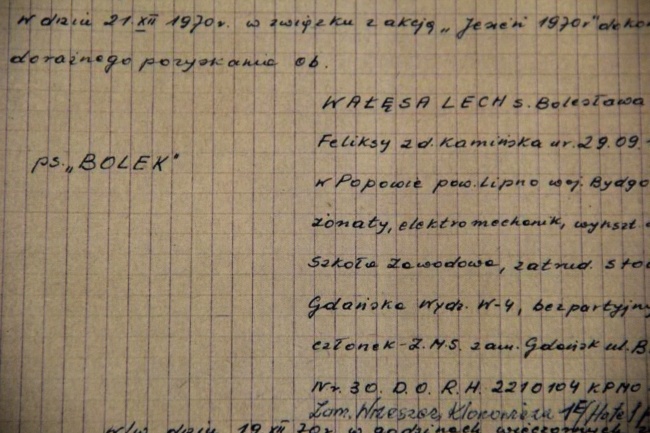 W dniu 21.XII 1970r. w związku z akcją „Jesień 1970r" dokon
doraźnego pozyskania ob.
WAŁĘSA LECH s. Bolesława
Feliksy z d. Kamińska ur. 29.09.
ps. „BOLEK"
w Popowie pow. Lipno woj. Bydgo
żonaty, elektromechanik, wykszt
Szkoła Zawodowa, zatrud. Sto
Gdańska Wydz. W-4, bezpartyjny
członek - Z.M.S. zam. Gdańsk ul. B
Nr. 30. D.O.R.H. 2210104 KPMO
Zam. Wrzeszcz,
dniu 19 XII 70r. w godzinach wieczornych